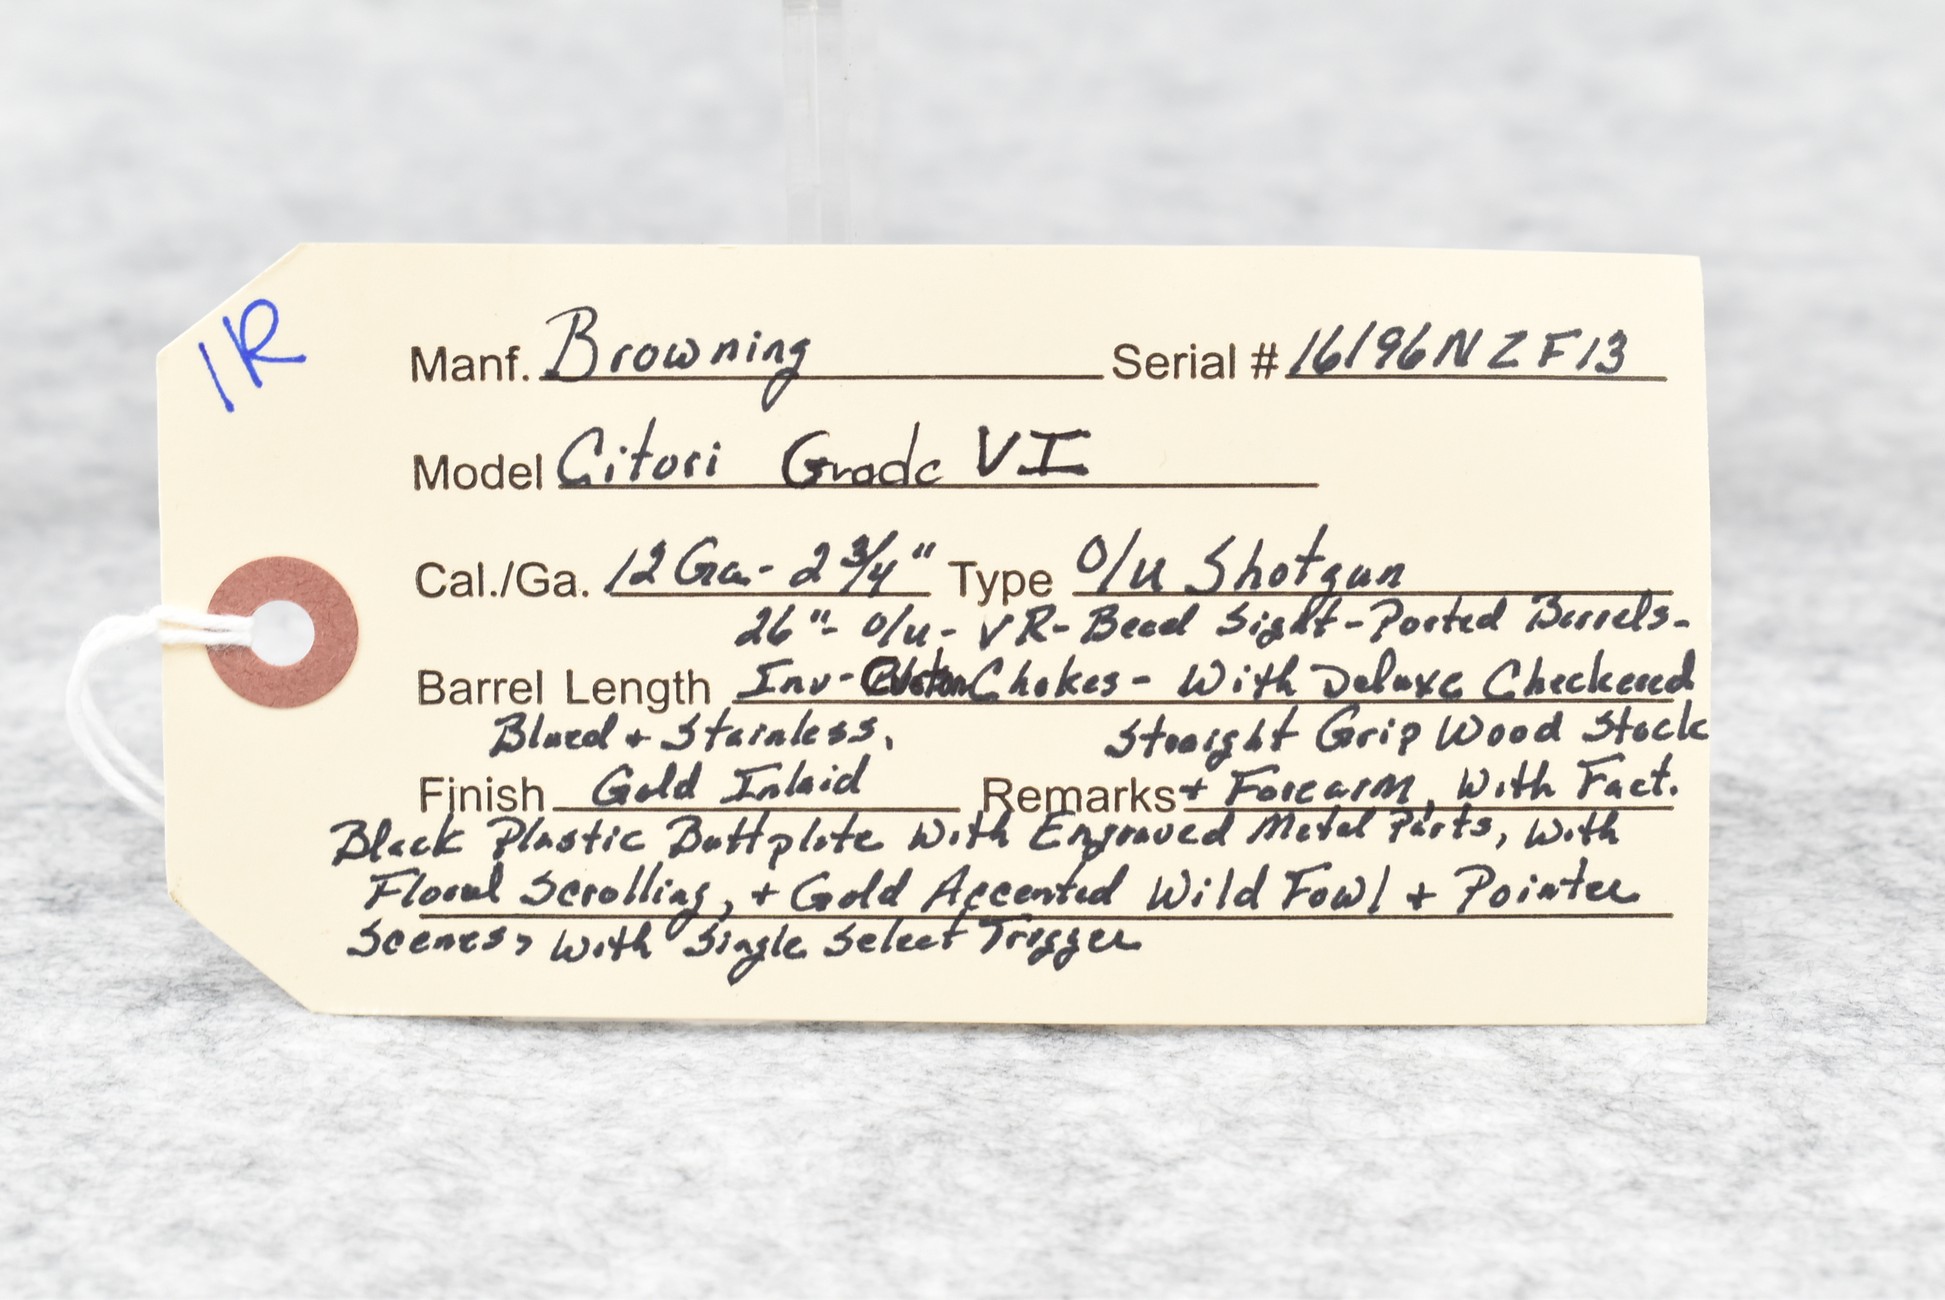 1R
Manf. Browning Serial # 16196NZF13
Model Citori Grade VI
Cal./Ga. 12 Ga.- 2 3/4" Type O/U Shotgun
26"- O/U- VR- Bead Sight- Ported Barrels-
Barrel Length Inv- Chokes- With Deluxe Checkered
Blued + Stainless, Straight Grip Wood Stock
Finish Gold Inlaid Remarks + Forearm, With Fact.
Black Plastic Buttplate With Engraved Metal Parts, With
Floral Scrolling, + Gold Accented Wild Fowl + Pointer
Scenes, With Single Select Trigger